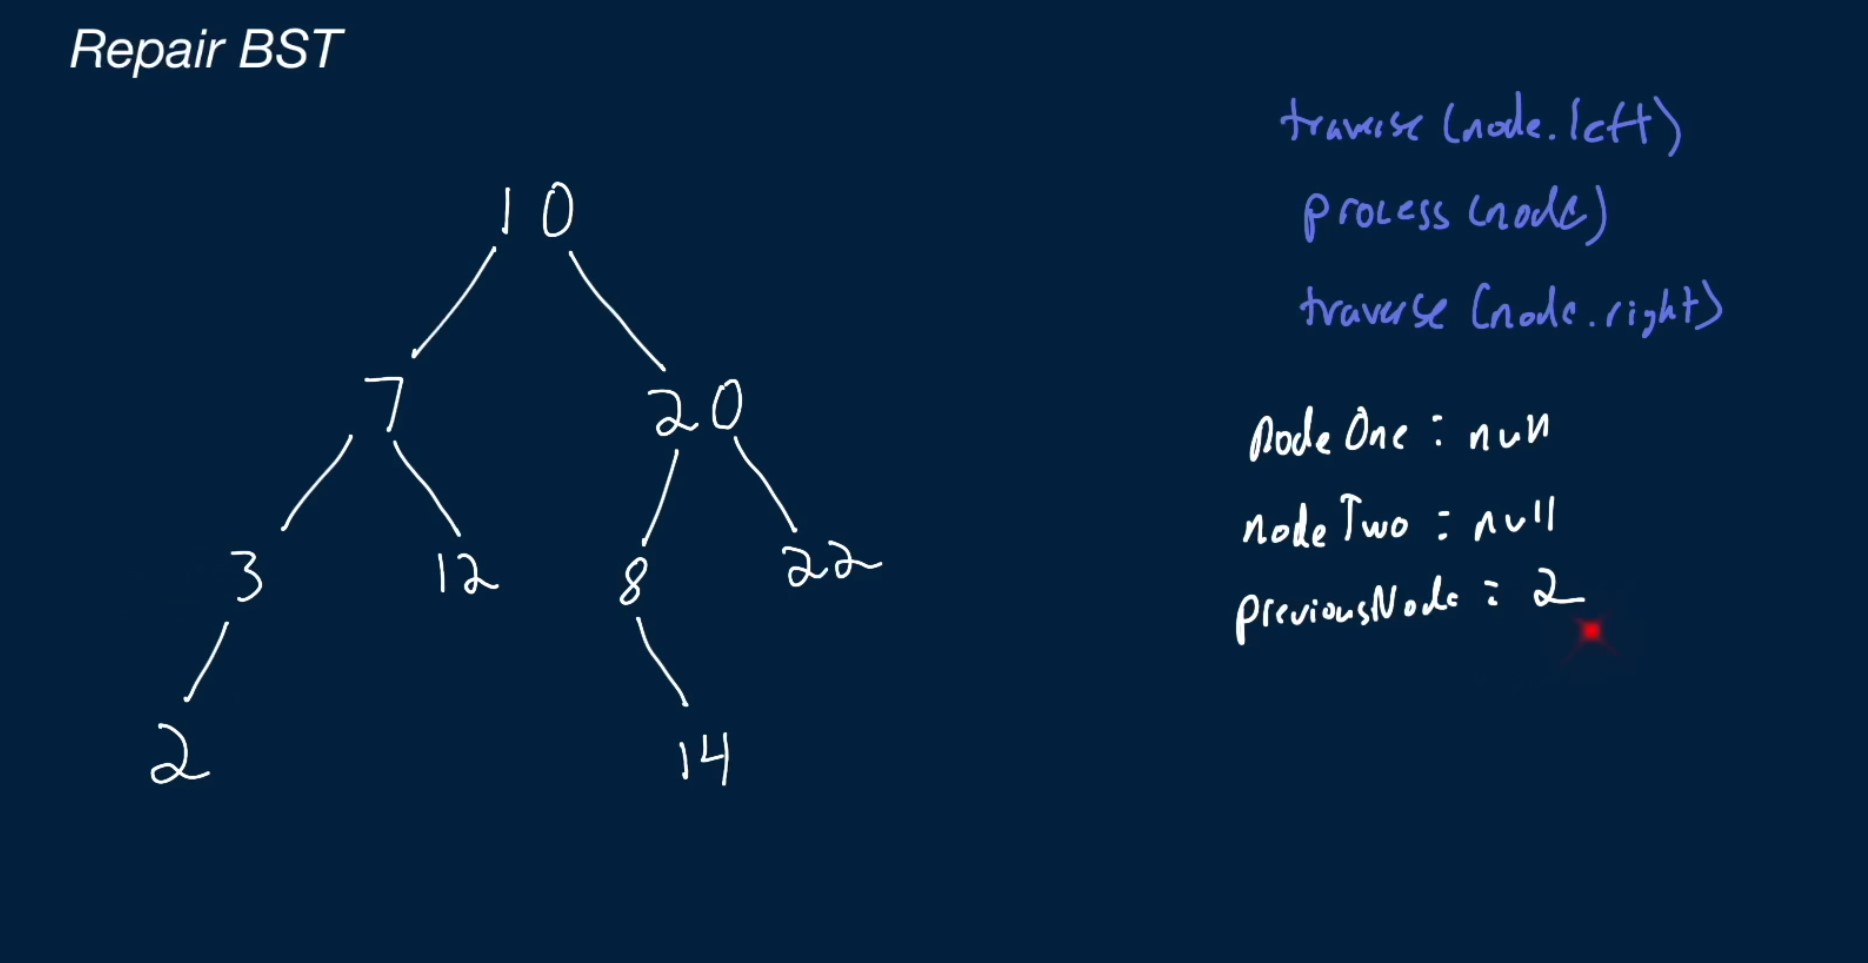 Repair BST
10
7 20
3 12 8 22
2 14
traverse (node.left)
process (node)
traverse (node.right)
nodeOne : null
nodeTwo : null
previousNode : 2